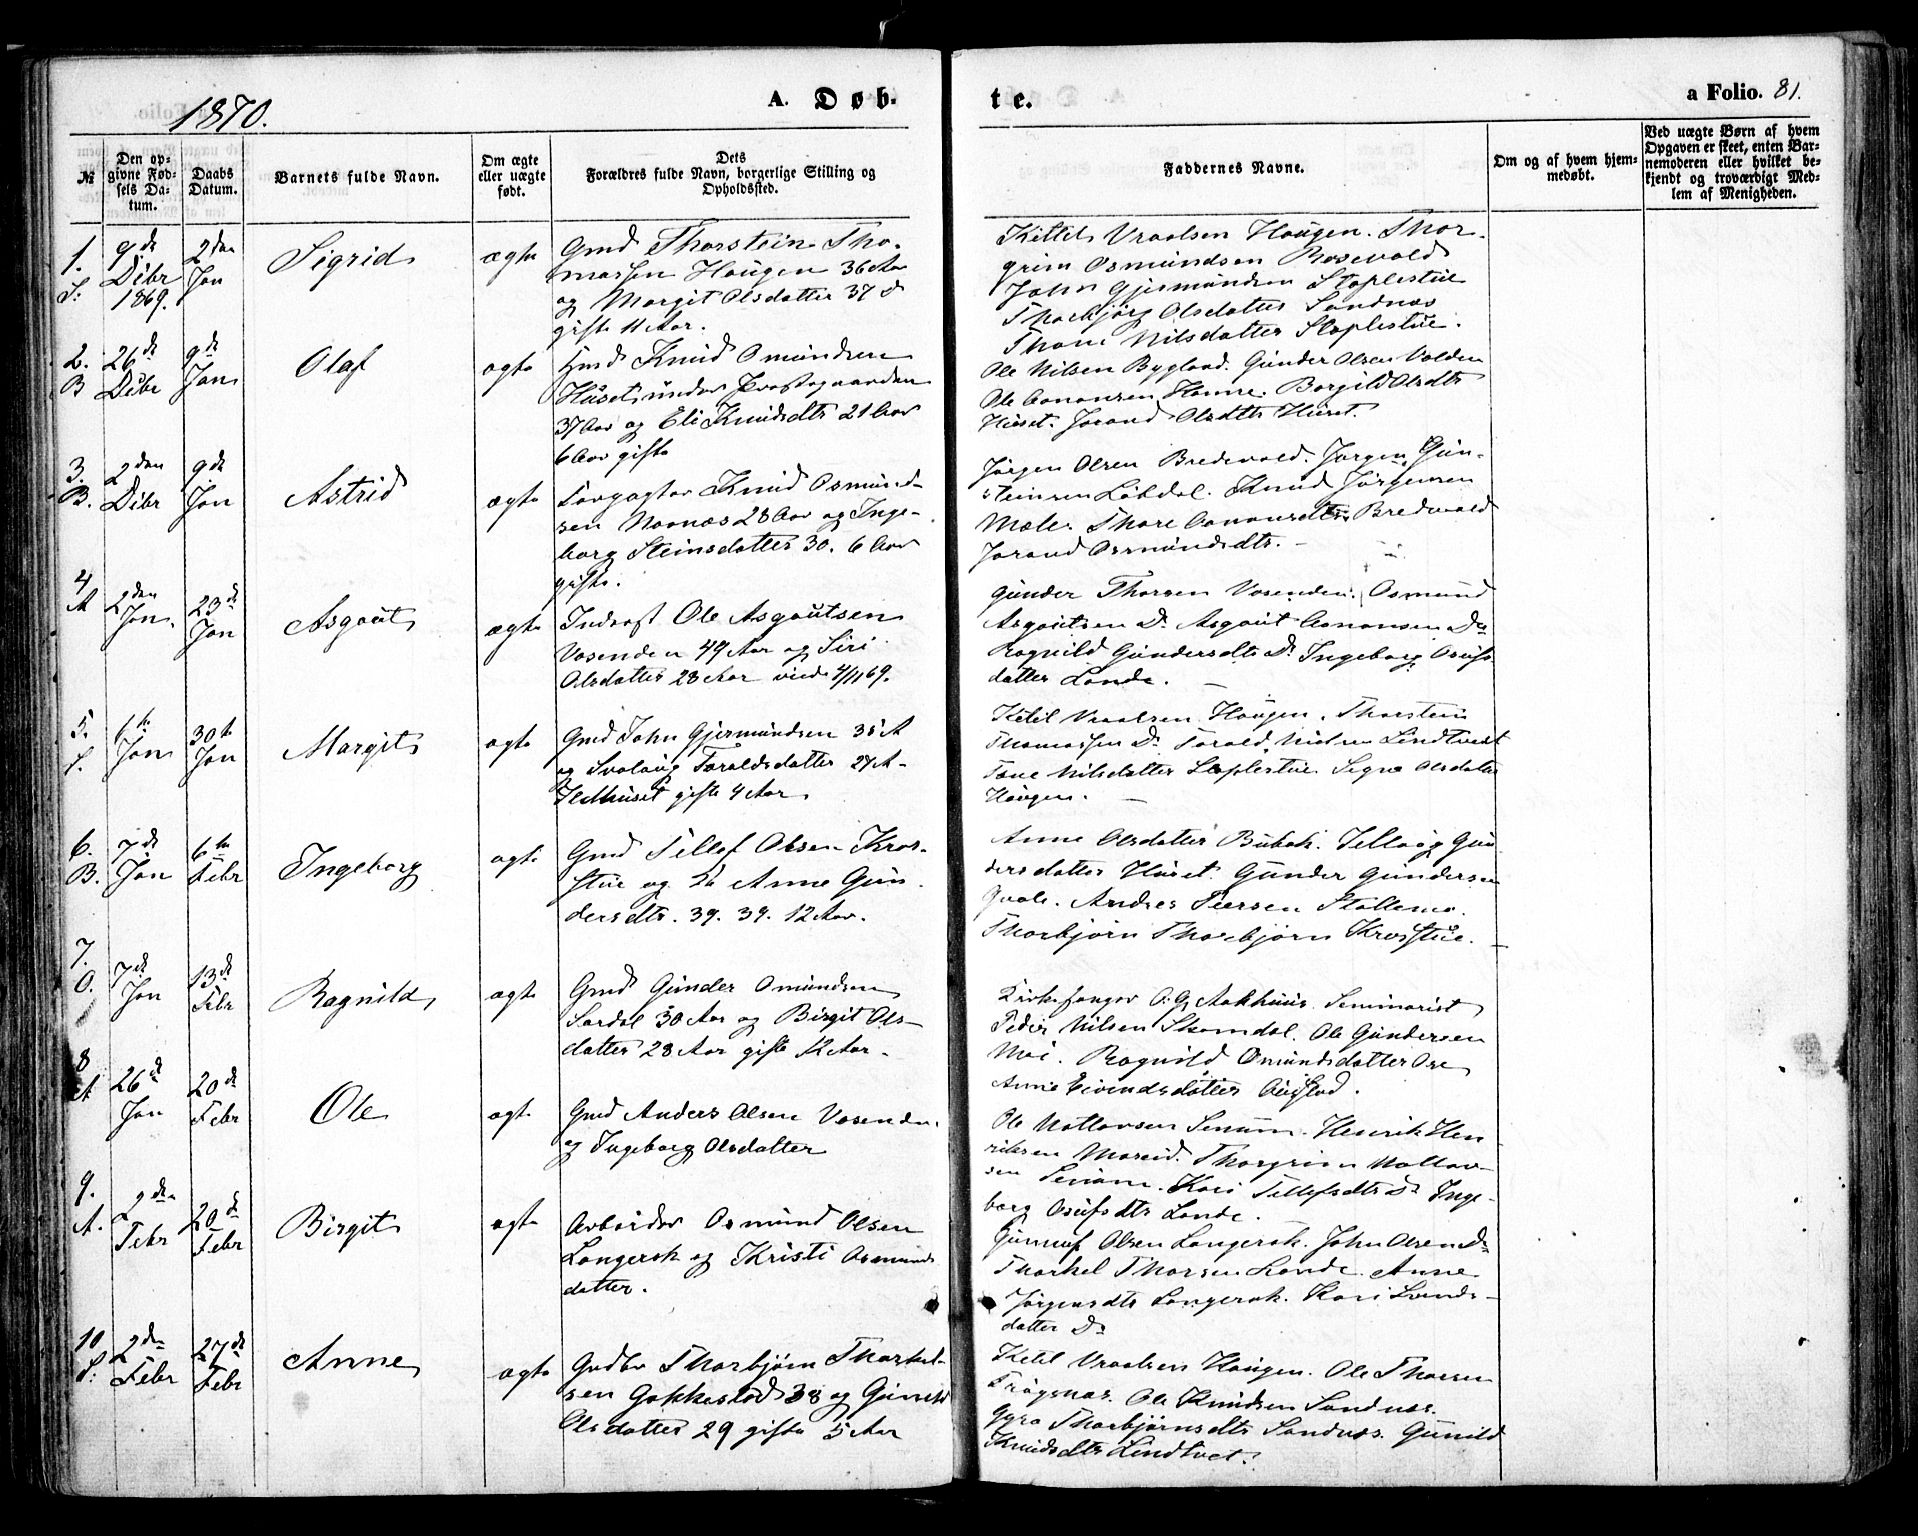 1870.
A. Døb-
te.
a Folio. 81.
№
Den op-
givne Fød-
sels Da-
tum.
Daabs
Datum.
Barnets fulde Navn.
Om ægte
eller uægte
født.
Dets
Forældres fulde Navn, borgerlige Stilling og
Opholdssted.
Faddernes Navne.
Om og af hvem hjem-
medøbt.
Ved uægte Børn af hvem
Opgaven er skeet, enten Bar-
nemoderen eller hvilket be-
kjendt og troværdigt Med-
lem af Menigheden.
1.
S.
9de
Dcbr
1869.
2den
Jan
Sigrid
ægte
Gmd Thorstein Tho-
massen Haugen 36 Aar
og Margit Olsdatter 37 d
gifte 11 Aar.
Kittil Vraalsen Haugen. Thor-
grim Osmundsen Rosevold
John Gjermundsen Staplestue
Thorbjørg Olsdatter Sandnæs
Thone Nilsdatter Staplestue.
2.
B
26de
Dcbr
9de
Jan
Olaf
ægte
Hmd Knud Omundsen
Huset under Præstegaarden
37 Aar og Eli Knudsdtr 21 Aar
6 Aar gifte
Ole Nilsen Bygland. Gunder Olsen Valden
Ole Aanonsen Hanne. Borgild Olsdtr
Huset. Jorand Olsdtr Huset.
3.
B.
2den
Dcbr
9de
Jan
Astrid
ægte
Forpagter Knud Osmund-
sen Noonæs 28 Aar og Inge-
borg Steinsdatter 30. 6 Aar
gifte.
Jørgen Olsen Bredvold. Jørgen Gun-
steinsenLøbdal. Knud Jørgensen
Mæle. Thore Aanonsdtr Bredvold
Jorand Osmundsdtr.
4
A
2den
Jan.
23de
Jan
Asgaut
ægte
Inderst Ole Asgautsen
Vasenden 49 Aar og Siri
Olsdatter 28 Aar viede 4/11 69.
Gunder Thorsen Vasenden. Osmund
Asgautsen Do Asgaut Aanonsen Do
Ragnild Gundersdtr Do Ingeborg Osufs
datter Lande.
5.
S.
6te
Jan
30te
Jan
Margit
ægte
Gmd John Gjermundsen 35 A
og Svalaug Taraldsdatter 27 A.
Ildhuset gifte 4 Aar
Ketil Vraalsen Haugen. Thorstein
Thomassen Do Tarald Nilsen Lindtveit
Tone Nilsdatter Staplestue. Signe Olsdatter
Haugen.
6.
B.
7de
Jan
6te
Febr
Ingeborg
ægte
Gmd Tellef Olsen Kros-
stue og Anne Gun-
dersdtr. 39. 39. 12 Aar.
Anne Olsdatter Bubak. Tellaug Gun-
dersdatter Huset. Gunder Gundersen
Qvale. Andres Peersen Støllemo.
Thorbjørn Thorbjørn Krosstue.
7.
O.
7de
Jan
13de
Febr
Ragnild
ægte
Gmd Gunder Omundsen
Sardal 30 Aar og Birgit Ols-
datter 28 Aar gifte 1/2 Aar.
Kirkesanger O. G. Aakhuus. Seminarist
Peder Nilsen Skomdal. Ole Gundersen
Moi. Ragnild Omundsdatter Ose
Anne Eivindsdatter Austad.
8
A
26de
Jan
20de
Febr
Ole
ægte
Gmd Anders Olsen Vasenden
og Ingeborg Olsdatter
Ole Nottovsen Senum. Henrik Hen-
riksen Moseid. Thorgrim Nottov-
sen Senum. Kari Tellefsdtr Do Inge-
borg Osufsdtr Lande.
9.
A.
2den
Febr
20de
Febr
Birgit
ægte
Arbeider Osmund Olsen
Langerak og Kristi Osmunds
datter.
Gunnuf Olsen Langerak. John Olsen Do
Thorkel Thorsen Lande. Anne
Jørgensdtr Langerak. Kari Svends-
datter Do
10
S.
2den
Febr
27de
Febr
Anne
ægte
Gmd Thorbjørn Thorkel-
sen Gakkestad 38 og Gunild
Olsdatter 29 gifte 5 Aar
Ketil Vraalsen Haugen. Ole Thorsen
Frøysnæs. Ole Knudsen Sandnæs.
Gyro Thorbjørnsdtr Sandnæs. Gunild
Knudsdtr Lindtvet.